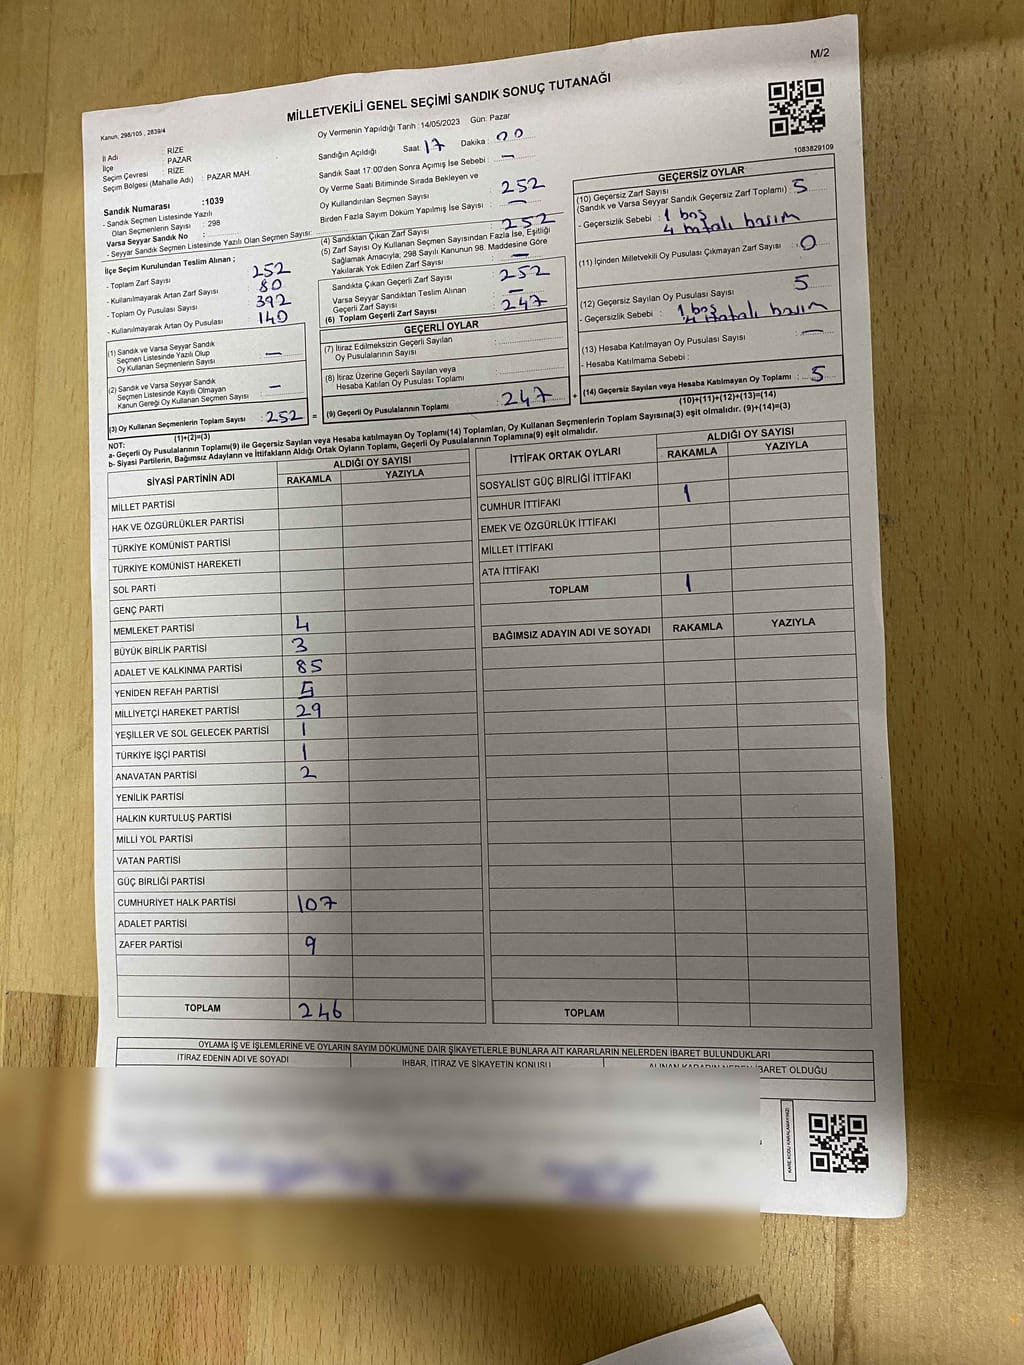 M/2
MİLLETVEKİLİ GENEL SEÇİMİ SANDIK SONUÇ TUTANAĞI
Kanun, 298/105 , 2839/4
İl Adı : RİZE
İlçe : PAZAR
Seçim Çevresi : RİZE
Seçim Bölgesi (Mahalle Adı) : PAZAR MAH.
Sandık Numarası :1039
- Sandık Seçmen Listesinde Yazılı
Olan Seçmenlerin Sayısı : 298
Varsa Seyyar Sandık No :
- Seyyar Sandık Seçmen Listesinde Yazılı Olan Seçmen Sayısı:
İlçe Seçim Kurulundan Teslim Alınan ;
- Toplam Zarf Sayısı : 252
- Kullanılmayarak Artan Zarf Sayısı : 80
- Toplam Oy Pusulası Sayısı : 392
- Kullanılmayarak Artan Oy Pusulası : 140
(1) Sandık ve Varsa Seyyar Sandık
Seçmen Listesinde Yazılı Olup
Oy Kullanan Seçmenlerin Sayısı : —
(2) Sandık ve Varsa Seyyar Sandık
Seçmen Listesinde Kayıtlı Olmayan
Kanun Gereği Oy Kullanan Seçmen Sayısı : —
(3) Oy Kullanan Seçmenlerin Toplam Sayısı : 252
(1)+(2)=(3)
Oy Vermenin Yapıldığı Tarih : 14/05/2023 Gün: Pazar
Sandığın Açıldığı Saat : 17 Dakika : 00
Sandık Saat 17:00'den Sonra Açımış İse Sebebi : —
Oy Verme Saati Bitiminde Sırada Bekleyen ve
Oy Kullandırılan Seçmen Sayısı : 252
Birden Fazla Sayım Döküm Yapılmış İse Sayısı : —
(4) Sandıktan Çıkan Zarf Sayısı : 252
(5) Zarf Sayısı Oy Kullanan Seçmen Sayısından Fazla İse, Eşitliği
Sağlamak Amacıyla, 298 Sayılı Kanunun 98. Maddesine Göre
Yakılarak Yok Edilen Zarf Sayısı : —
Sandıkta Çıkan Geçerli Zarf Sayısı : 252
Varsa Seyyar Sandıktan Teslim Alınan
Geçerli Zarf Sayısı : —
(6) Toplam Geçerli Zarf Sayısı : 247
GEÇERLİ OYLAR
(7) İtiraz Edilmeksizin Geçerli Sayılan
Oy Pusulalarının Sayısı :
(8) İtiraz Üzerine Geçerli Sayılan veya
Hesaba Katılan Oy Pusulası Toplamı :
= (9) Geçerli Oy Pusulalarının Toplamı : 247 +
1083829109
GEÇERSİZ OYLAR
(10) Geçersiz Zarf Sayısı
(Sandık ve Varsa Seyyar Sandık Geçersiz Zarf Toplamı) : 5
- Geçersizlik Sebebi : 1 boş
4 hatalı basım
(11) İçinden Milletvekili Oy Pusulası Çıkmayan Zarf Sayısı : 0
(12) Geçersiz Sayılan Oy Pusulası Sayısı : 5
- Geçersizlik Sebebi : 1 boş
4 hatalı basım
(13) Hesaba Katılmayan Oy Pusulası Sayısı : —
- Hesaba Katılmama Sebebi :
(14) Geçersiz Sayılan veya Hesaba Katılmayan Oy Toplamı : 5
(10)+(11)+(12)+(13)=(14)
NOT:
a- Geçerli Oy Pusulalarının Toplamı(9) ile Geçersiz Sayılan veya Hesaba katılmayan Oy Toplamı(14) Toplamları, Oy Kullanan Seçmenlerin Toplam Sayısına(3) eşit olmalıdır. (9)+(14)=(3)
b- Siyasi Partilerin, Bağımsız Adayların ve İttifakların Aldığı Ortak Oyların Toplamı, Geçerli Oy Pusulalarının Toplamına(9) eşit olmalıdır.
SİYASİ PARTİNİN ADI ALDIĞI OY SAYISI
RAKAMLA YAZIYLA
MİLLET PARTİSİ
HAK VE ÖZGÜRLÜKLER PARTİSİ
TÜRKİYE KOMÜNİST PARTİSİ
TÜRKİYE KOMÜNİST HAREKETİ
SOL PARTİ
GENÇ PARTİ
MEMLEKET PARTİSİ 4
BÜYÜK BİRLİK PARTİSİ 3
ADALET VE KALKINMA PARTİSİ 85
YENİDEN REFAH PARTİSİ 5
MİLLİYETÇİ HAREKET PARTİSİ 29
YEŞİLLER VE SOL GELECEK PARTİSİ 1
TÜRKİYE İŞÇİ PARTİSİ 1
ANAVATAN PARTİSİ 2
YENİLİK PARTİSİ
HALKIN KURTULUŞ PARTİSİ
MİLLİ YOL PARTİSİ
VATAN PARTİSİ
GÜÇ BİRLİĞİ PARTİSİ
CUMHURİYET HALK PARTİSİ 107
ADALET PARTİSİ
ZAFER PARTİSİ 9
TOPLAM 246
İTTİFAK ORTAK OYLARI ALDIĞI OY SAYISI
RAKAMLA YAZIYLA
SOSYALİST GÜÇ BİRLİĞİ İTTİFAKI
CUMHUR İTTİFAKI 1
EMEK VE ÖZGÜRLÜK İTTİFAKI
MİLLET İTTİFAKI
ATA İTTİFAKI
TOPLAM 1
BAĞIMSIZ ADAYIN ADI VE SOYADI RAKAMLA YAZIYLA
TOPLAM
OYLAMA İŞ VE İŞLEMLERİNE VE OYLARIN SAYIM DÖKÜMÜNE DAİR ŞİKAYETLERLE BUNLARA AİT KARARLARIN NELERDEN İBARET BULUNDUKLARI
İTİRAZ EDENİN ADI VE SOYADI İHBAR, İTİRAZ VE ŞİKAYETİN KONUSU ALINAN KARARIN NEDEN İBARET OLDUĞU
KARE KODU KARALAMAYINIZ!